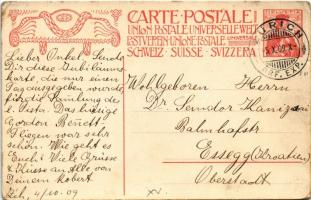 CARTE POSTALE
UNION POSTALE UNIVERSELLE WELT
POSTVEREIN UNIONE POSTALE
SCHWEIZ · SUISSE · SVIZZERA
ZÜRICH
BRF. EXP.
Lieber Onkel, Sende
Dir diese Jubiläums
karte, die nur einen
Tag ausgegeben wurde
für die
Gordon Bennett
Fliegen war sehr
schön. Wie geht es
Euch? Viele Grüsse
& Küsse an Alle von
Deinem Robert
Zch, 4/10.09
Wohlgeboren Herrn
Dr. Sandor
Bahnhofstr
Essegg (Kroatien)
Oberstadt
XV.